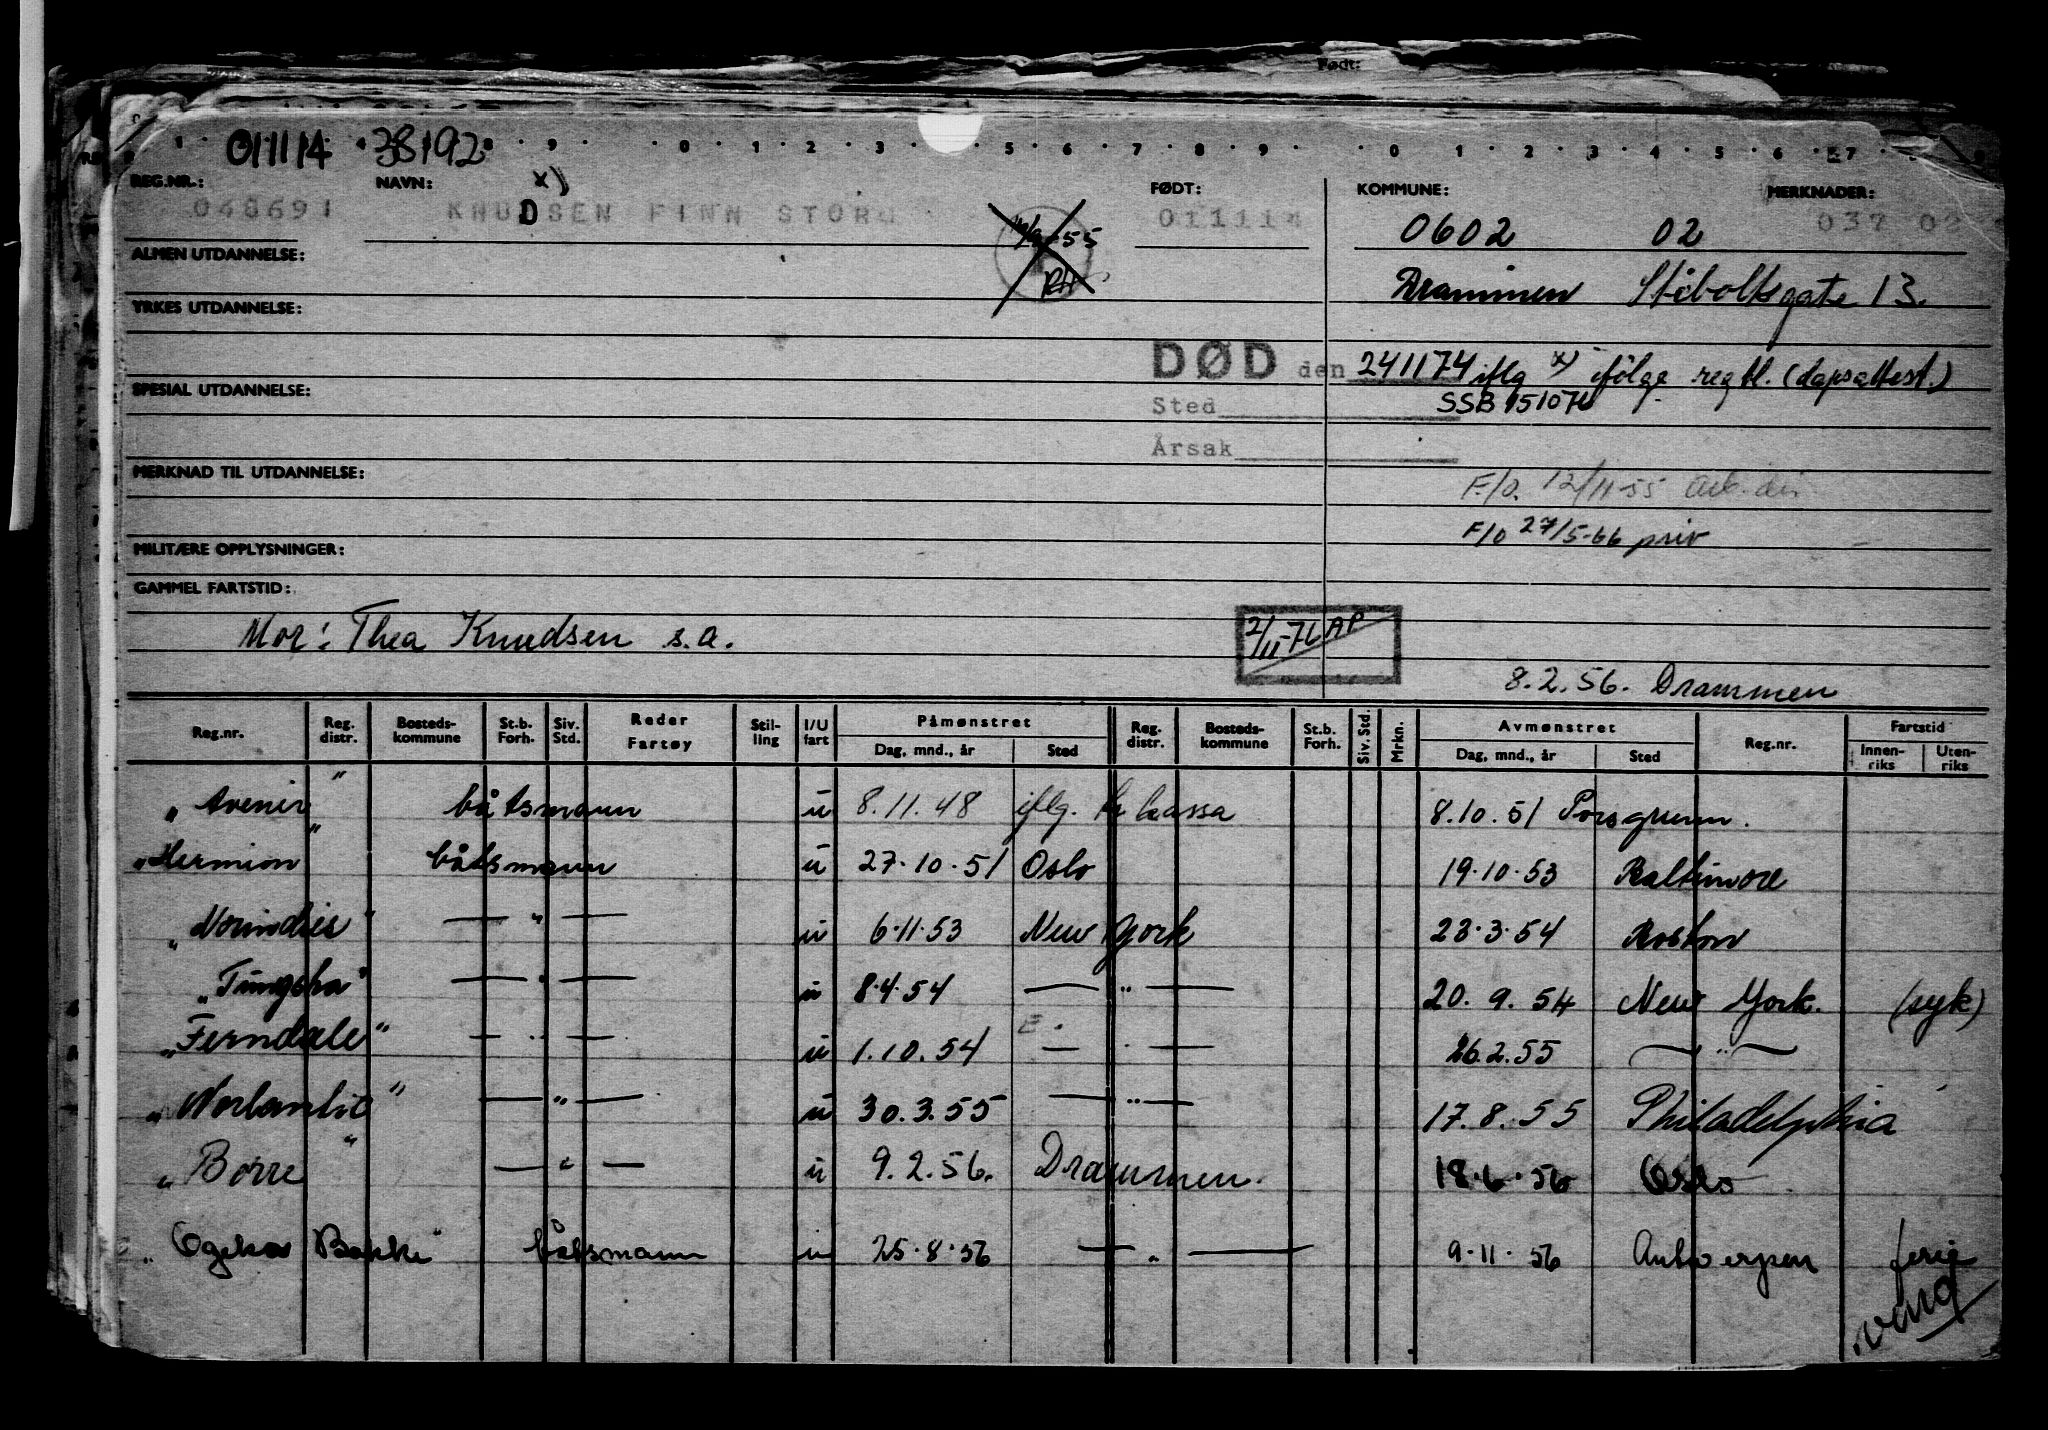 Født:
011114 38192
REG.NR.: NAVN: x) FØDT: KOMMUNE: MERKNADER:
068691 KNUDSEN FINN 011114 0602 02 037
ALMEN UTDANNELSE:
Drammen Stiboltsgate 13.
YRKES UTDANNELSE:
DØD den 241174 iflg x) ifølge reg bl. (dåpsattest.)
SPESIAL UTDANNELSE:
Sted SSB 151076
Årsak
MERKNAD TIL UTDANNELSE:
F/o. 12/11-55 arb. dir
F/o 27/5-66 priv
MILITÆRE OPPLYSNINGER:
GAMMEL FARTSTID:
Mor: Thea Knudsen s.a.
2/11-76 AP
8.2.56. Drammen
Reg.nr. Reg. distr. Bosteds-kommune St.b. Forh. Siv. Std. Reder Fartøy Stil-ling I/U fart Påmønstret Dag, mnd., år Sted Reg. distr. Bosteds-kommune St.b. Forh. Siv. Std. Mrkn. Avmønstret Dag, mnd., år Sted Reg.nr. Fartstid Innen-riks Uten-riks
"Avenir" båtsmann u 8.11.48 iflg. kassa 8.10.51 Porsgrunn.
"Hermion" båtsmann u 27.10.51 Oslo 19.10.53 Baltimore
"Norindies" — " — u 6.11.53 New York 23.3.54 Boston
"Tungsha" — " — u 8.4.54 — " — 20.9.54 New York. (syk)
"Ferndale" — " — u 1.10.54 — " — 26.2.55 — " —
"Norlantic" — " — u 30.3.55 — " — 17.8.55 Philadelphia
"Borre" — " — u 9.2.56. Drammen. 18.6.56 Oslo
"Ogeka Bakke" båtsmann u 25.8.56 — " — 9.11.56 Antwerpen ferie
vend